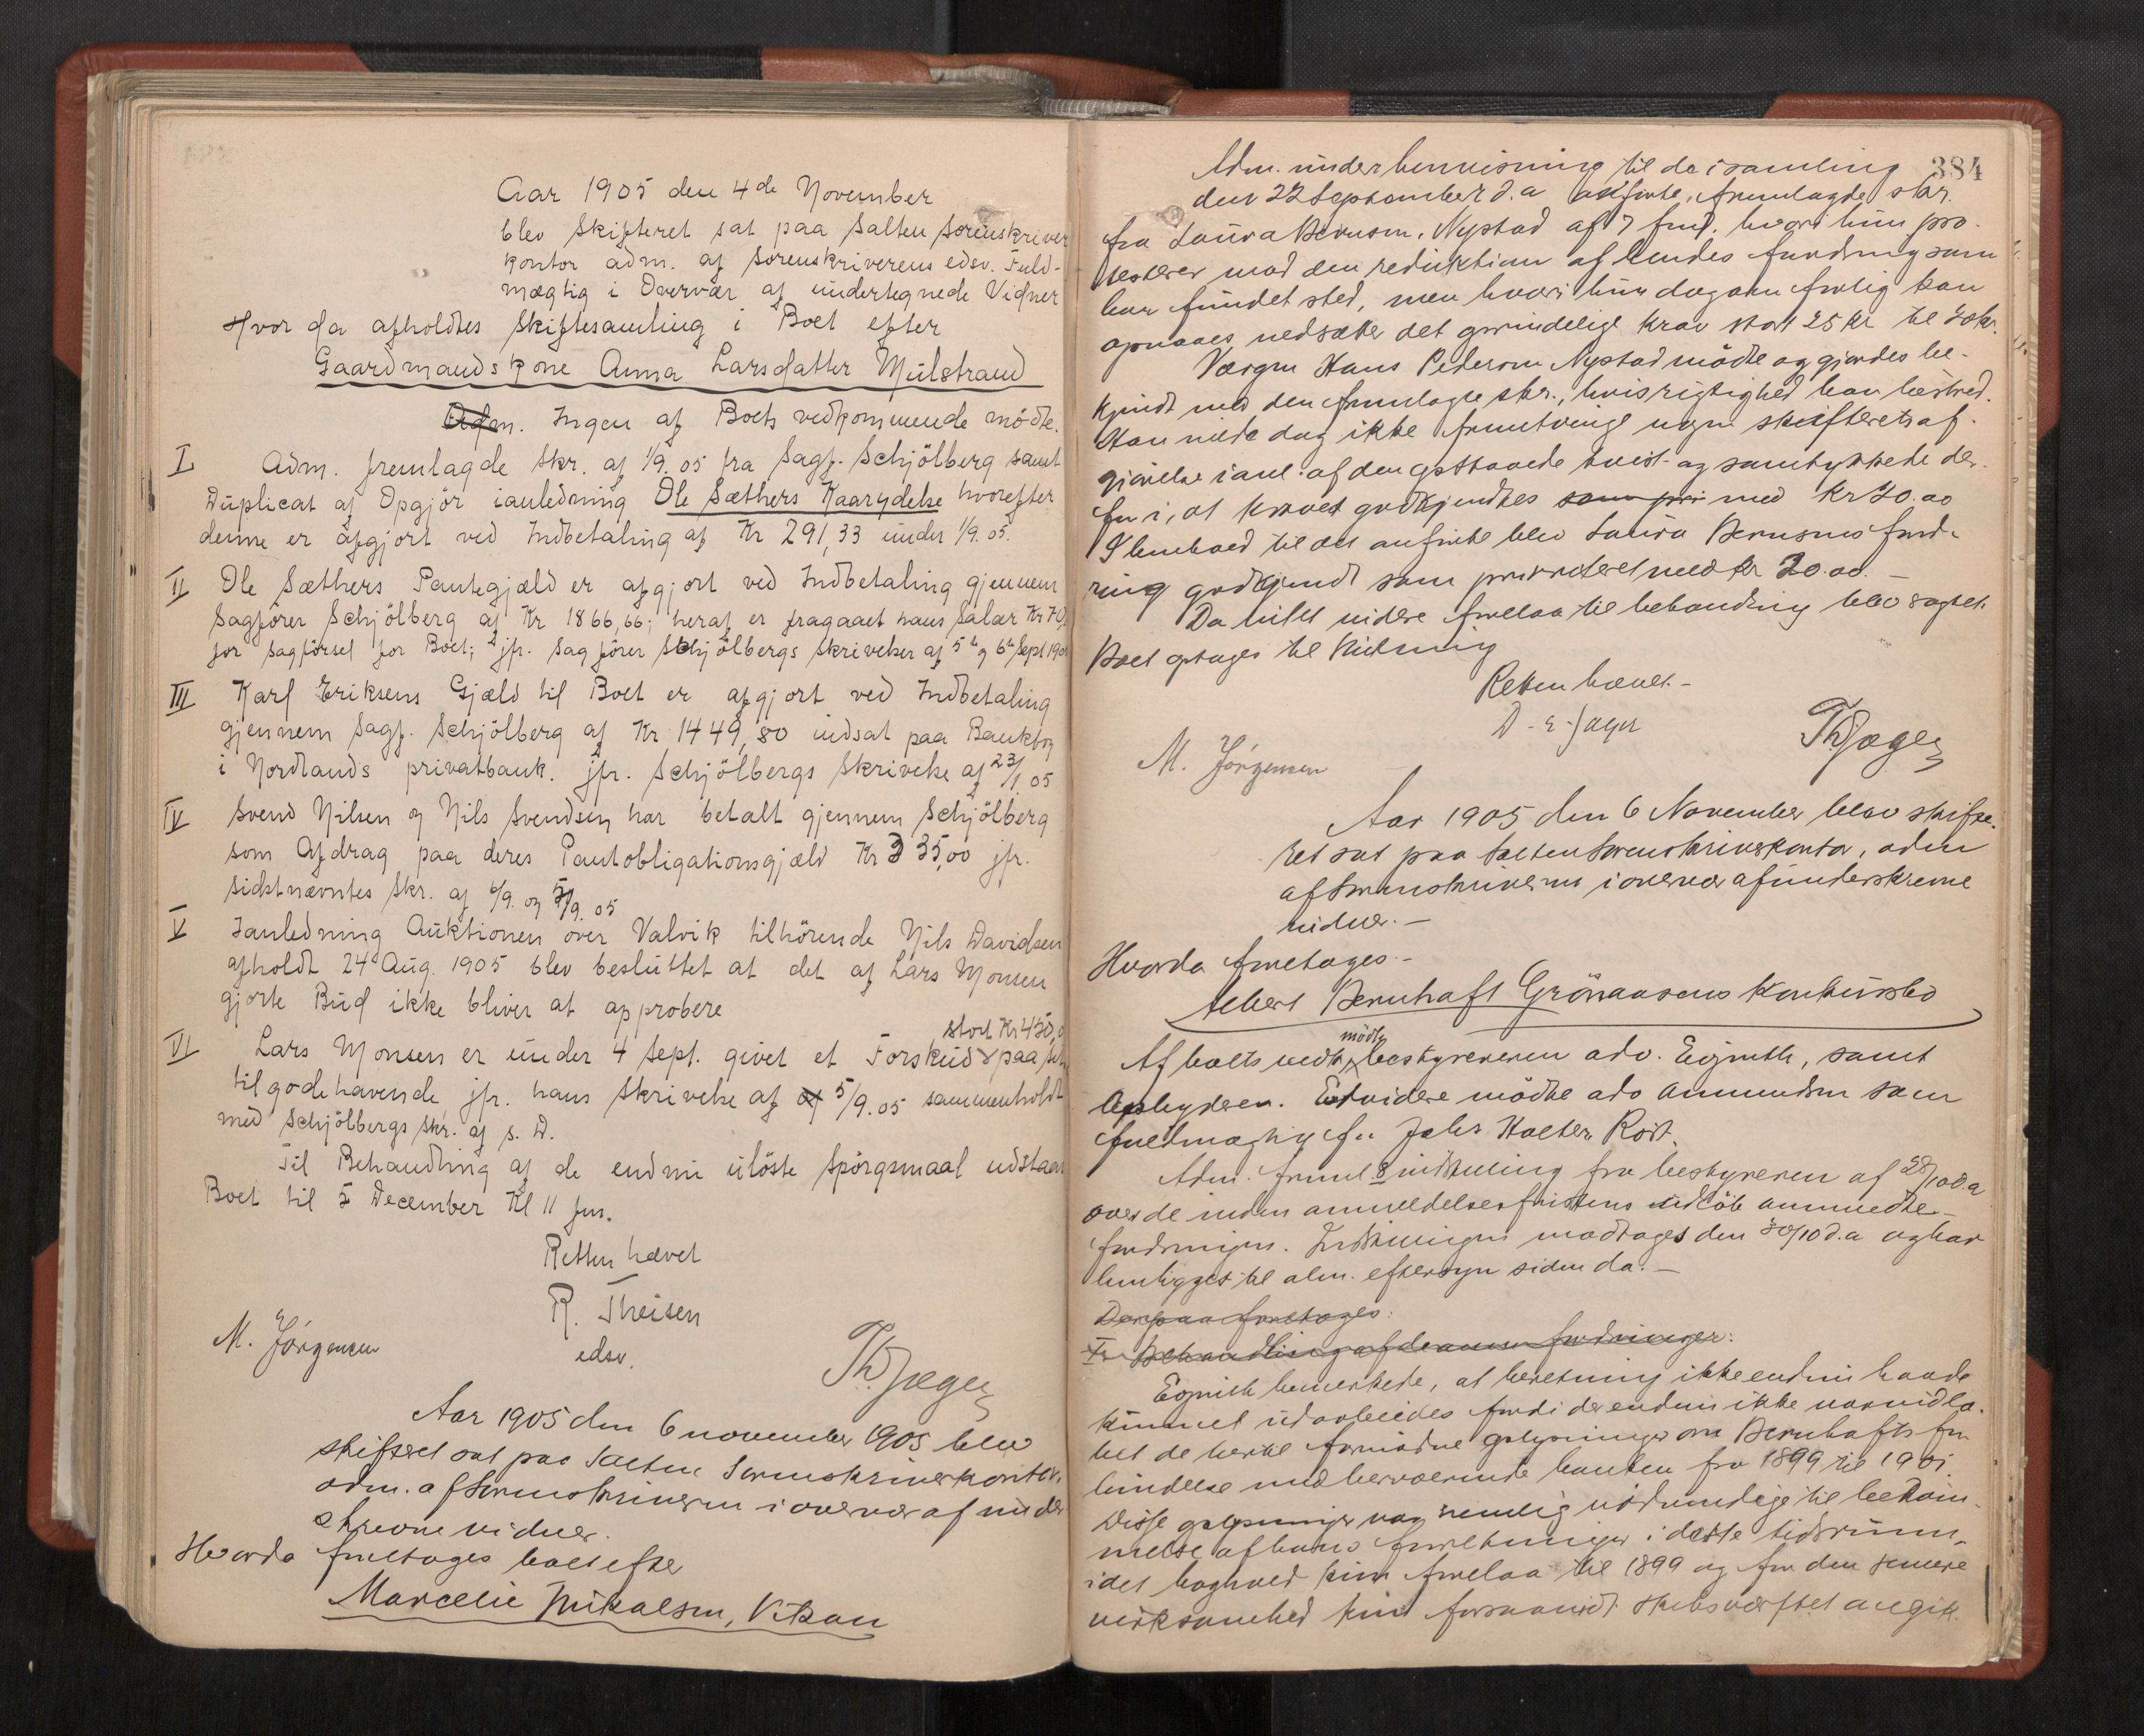 Aar 1905 den 4de November
blev Skifteret sat paa Salten Sorenskriver
kontor adm. af Sorenskriverens edsv. Fuld-
mægtig i Overvær af undertegnede Vidner
Hvor da afholdtes Skiftesamling i Boet efter
Gaardmandskone Anna Larsdatter Mülstrand
Adm. Ingen af Boets vedkommende mödte.
I Adm. fremlagde Skr. af 1/9.05 fra Sagf. Schjölberg samt
Duplicat af Opgjör ianledning Ole Sæthers Kaarydelse hvorefter
denne er afgjort ved Indbetaling af Kr 291,33 under 1/9.05.
II Ole Sæthers Pantegjæld er afgjort ved Indbetaling gjennem
Sagförer Schjölberg af Kr 1866,66; heraf er fragaaet hans Salær Kr
for Sagförsel for Boet; jfr. Sagförer Schjölbergs Skrivelser af 5te og 6te Sept 190
III Karl Eriksens Gjæld til Boet er afgjort ved Indbetaling
gjennem Sagf. Schjölberg af Kr 1449,80 indsat paa Bankbog
i Nordlands privatbank. jfr. Schjölbergs Skrivelse af 23/1 05
IV Svend Nilsen og Nils Svendsen har betalt gjennem Schjölberg
som Afdrag paa deres Pantobligationsgjæld Kr 335,00 jfr.
sidstnævntes Skr. af 6/9. og 7/9. 05
V Ianledning Auktionen over Valvik tilhörende Nils Davidsen
afholdt 24 Aug. 1905 blev besluttet at det af Lars Monsen
gjorte Bud ikke bliver at approbere
stort Kr 450,0
VI Lars Monsen er under 4 Sept. givet et Forskud paa sit
tilgodehavende jfr. hans Skrivelse af af 5/9.05 sammenholdt
med Schjölbergs Skr. af s. D.
Til Behandling af de endnu ulöste Spörgsmaal udstaar
Boet til 5 December Kl 11 fm.
Retten hævet
R. Theisen
edsv.
M. Jörgensen
Th Jæger
Aar 1905 den 6 november 1905 blev
skifteret sat paa Salten Sorenskriverkontor,
adm. af Sorenskriveren i overvær af under
skrevne vidner.
Hvorda foretages boet efter
Marcelie Mikalsen, Vikan
384
Adm. under henvisning til de i samling
den 22 September d.a anførte, fremlagde skr.
fra Laura Bernsen, Nystad af 7 hvori hun pro-
testerer mod den reduktion af hendes fordring som
har fundet sted, men hvori hun dog om forlig kan
opnaaes nedsætter det oprindelige krav stort 25 kr til 20 kr.
Værgen Hans Pedersen Nystad mödte og gjordes be-
kjendt med den fremlagte skr., hvis rigtighed han bestred.
Han vilde dog ikke fremtvinge nogen skifterets af-
gjørelse i anl. af den opstaaede tvist og samtykkede der-
for i, at kravet godkjendtes som pri med kr 20.00
I henhold til det anførte blev Laura Bernsens ford-
ring godkjendt som prioriteret med kr 20.00. –
Da intet videre forelaa til behandling blev sagtet.
Boet optages til slutning
Retten hævet. –
D. E. Jæger
M. Jörgensen
Th Jæger
Aar 1905 den 6 November blev skifte-
ret sat paa Salten Sorenskriverkontor, adm
af Sorenskriveren i overvær af underskrevne
vidner. –
Hvorda foretages. –
Albert Bernhaft Grönaasens Konkursbo
mödte
Af boets vedk. bestyreren adv. Egnith, samt
Opbyderen. Endvidere mödte adv Ammundsen som
fuldmægtig for Jahs Halter, Röst.
Adm. freml 8 indstilling fra bestyreren af 28/10 d.a
over de inden anmeldelsesfristens udløb anmeldte
fordringer. Indstillingen modtages den 30/10 d.a og har
henligget til alm. eftersyn siden da. –
Derpaa foretages:
I. Behandling af de anm fordringer:
Egnith bemerkede, at beretning ikke endnu havde
kunnet udarbeides fordi der endnu ikke var indlø-
bet de herlil fornødne oplysninger om Bernhafts for-
bindelse med herværende banken fra 1899 til 1901.
Disse oplysninger var nemlig nødvendige til bedöm-
melse af hans forretninger i dette tidsrum,
idet boghold kun forelaa til 1899 og for den senere
virksomhed kun forsaavidt skibsværftet angik.